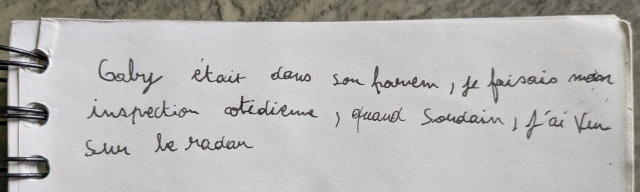 Gaby était dans son harem, je faisais mon
inspection cotidienne, quand soudain, j'ai vu
sur le radar